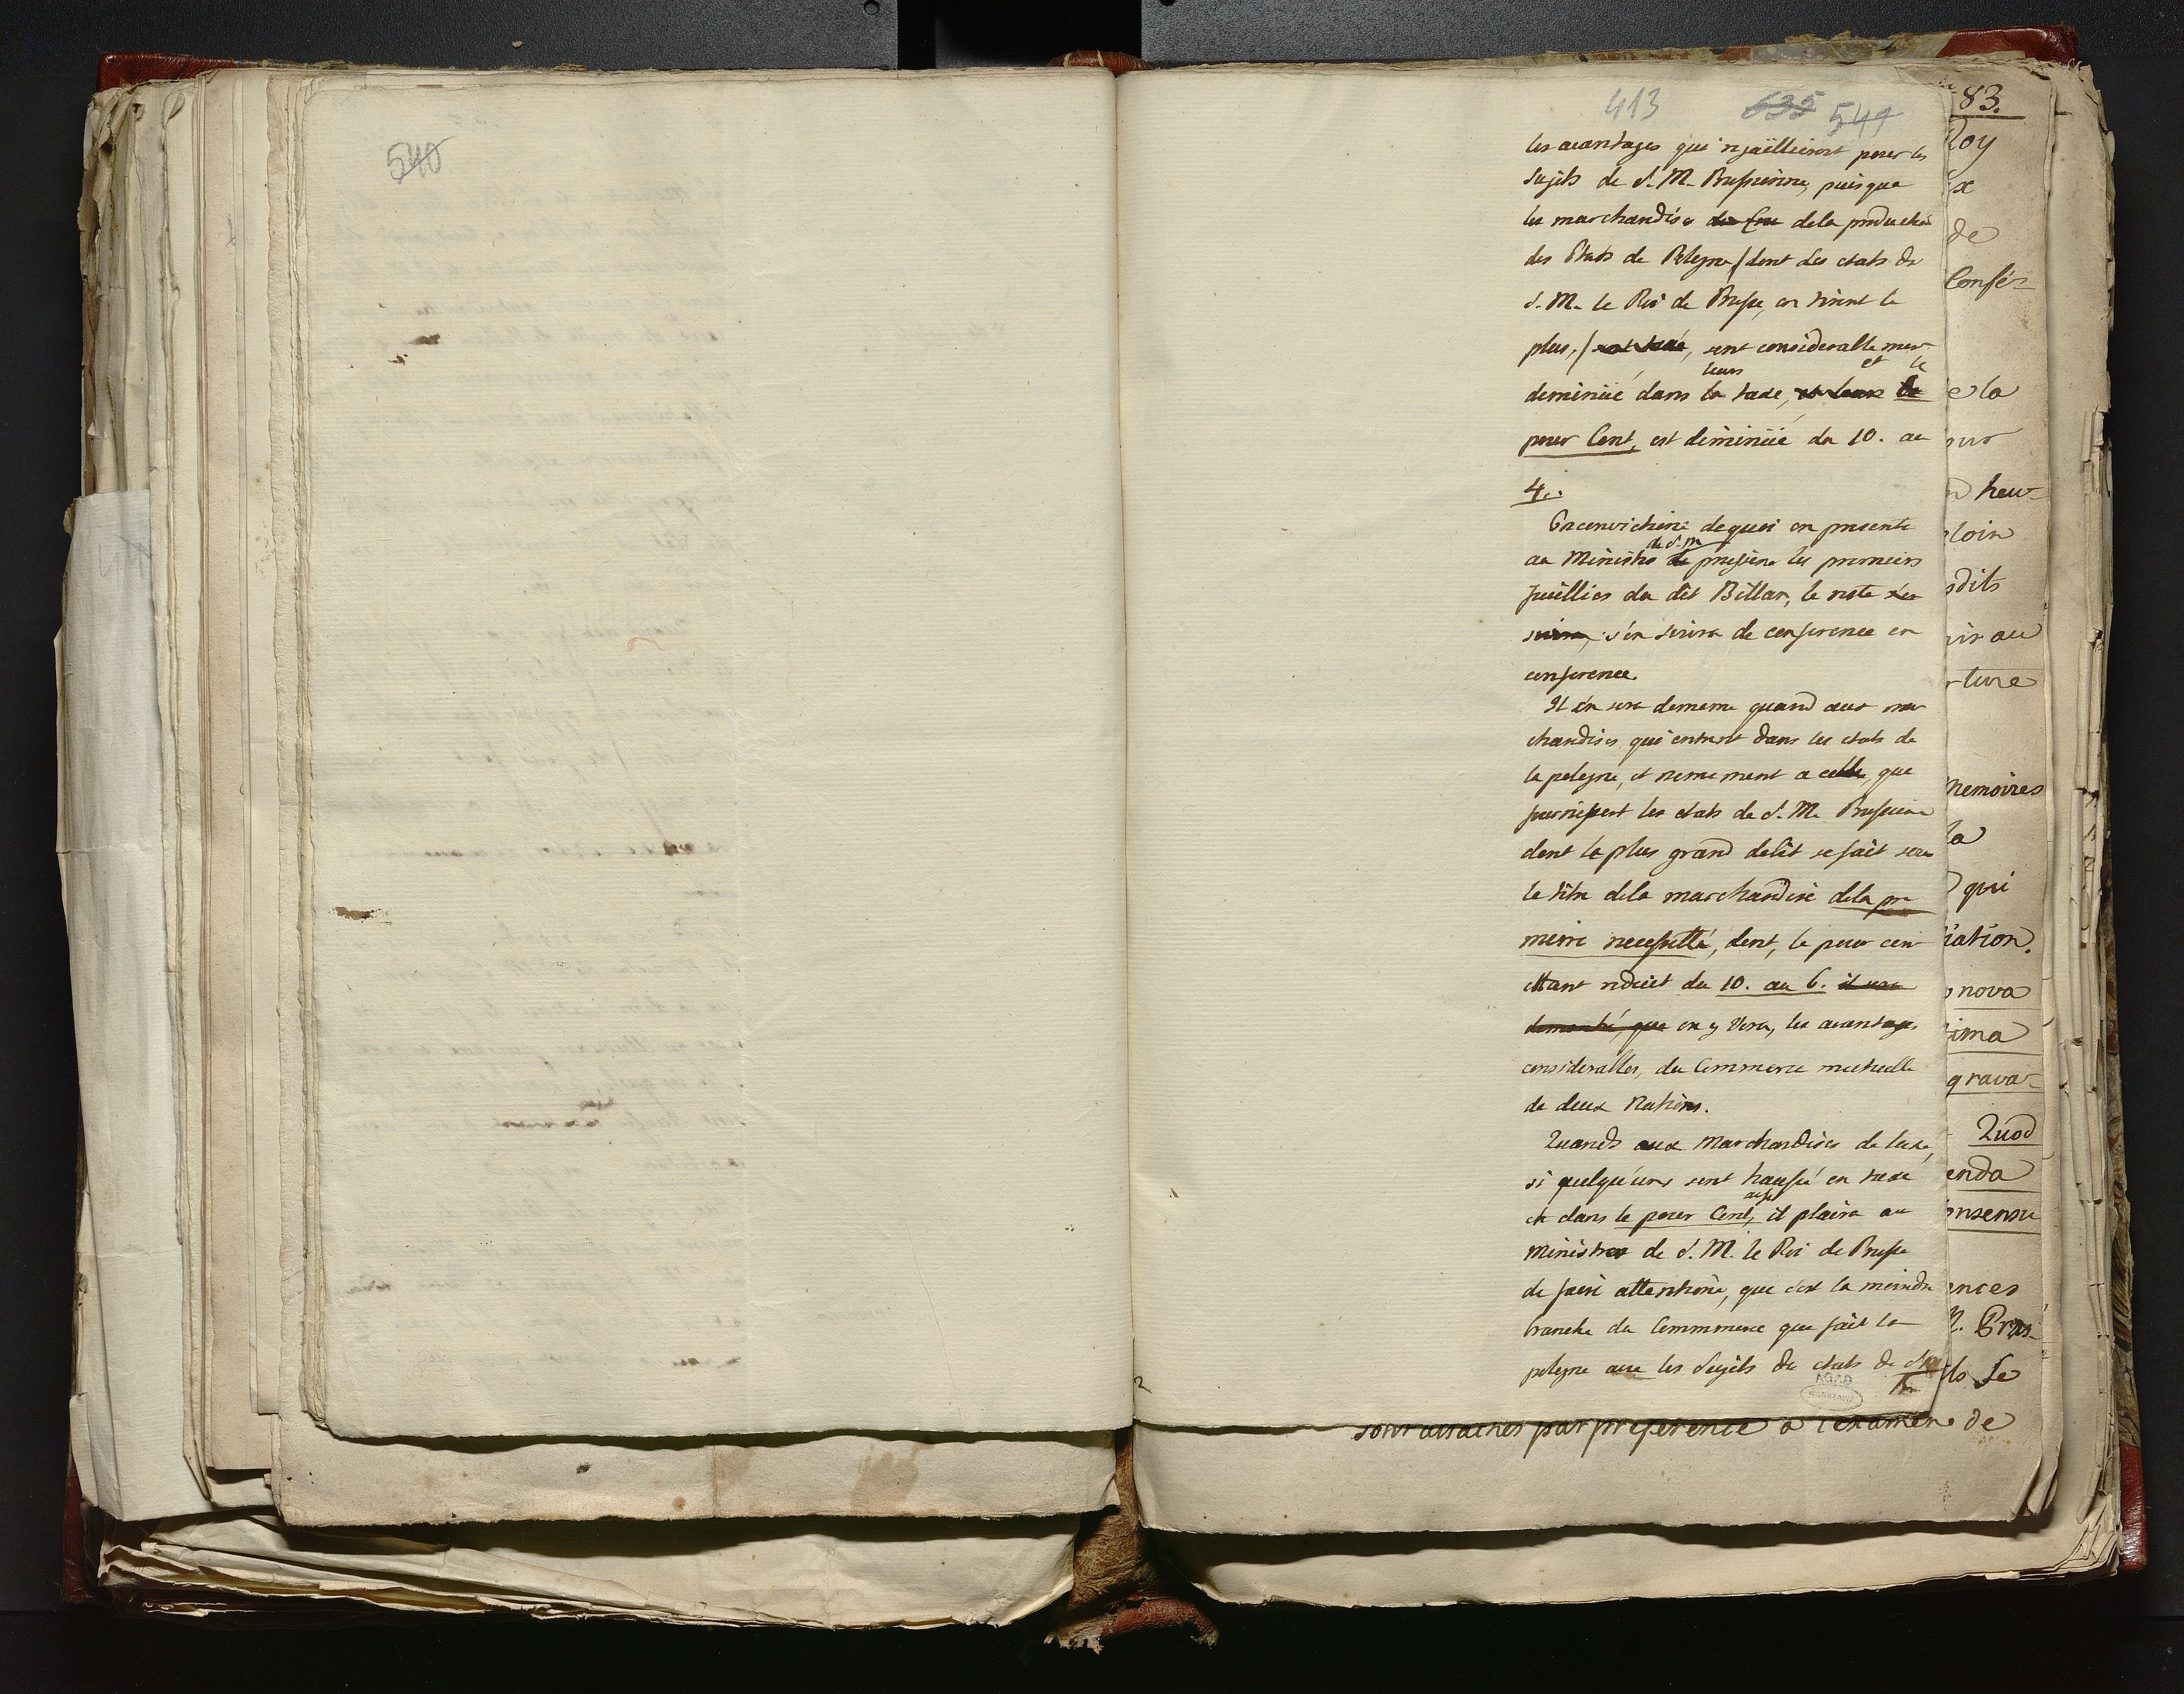 540
413 635 541
les avantages qui rejaillieront pour les
Sujets de S. M. Prussienne, puisque
les marchandises du Cru de la production
des Etats de Pologne / dont les etats de
S. M. le Roi de Prusse, en tirent le
plus, / sont taxé, sont considerablement
leurs et le
deminüé dans la taxe, et leurs le
pour Cent, est diminüé du 10. au
4.
de quoi on presente
de S. M.
au Ministre de prussiene les premiers
fuëllies du dit Billan, le reste s'en
suivra, s'en suivra de conference en
conference.
Il s'en sera de meme quand aux mar
chandises qui entrent dans les etats de
la pologne, et nomement a celle, que
fournissent les etats de S. M. Prussiene
dont le plus grand debit se fait sous
le titre de la marchandise de la pre
miere necessitté, dont, le pour cen
ettant reduit du 10. au 6. il sera
demontré, que on y Vera, les avantages
considerables, du Commerce mutuelle
de deux Nations.
Quands aux Marchandises de luxe,
si quelqu'uns sont haussé en taxe
aussi
et dans le pour Cent, il plaira au
Ministre de S. M. le Roi de Prusse
de faire attentione, que c'est la moindre
branche du Commmerce que fait la
pologne avec les Sujets du etats de S. M.
83.
Roy
x
de
Confé-
e la
our
heu-
loin
dits
ir au
rture
Memoires
la
qui
iation.
nova
ima
grava-
Quod
enda
onsensu
ences
Bras-
ls se
sont attachés par preference a l'examen de